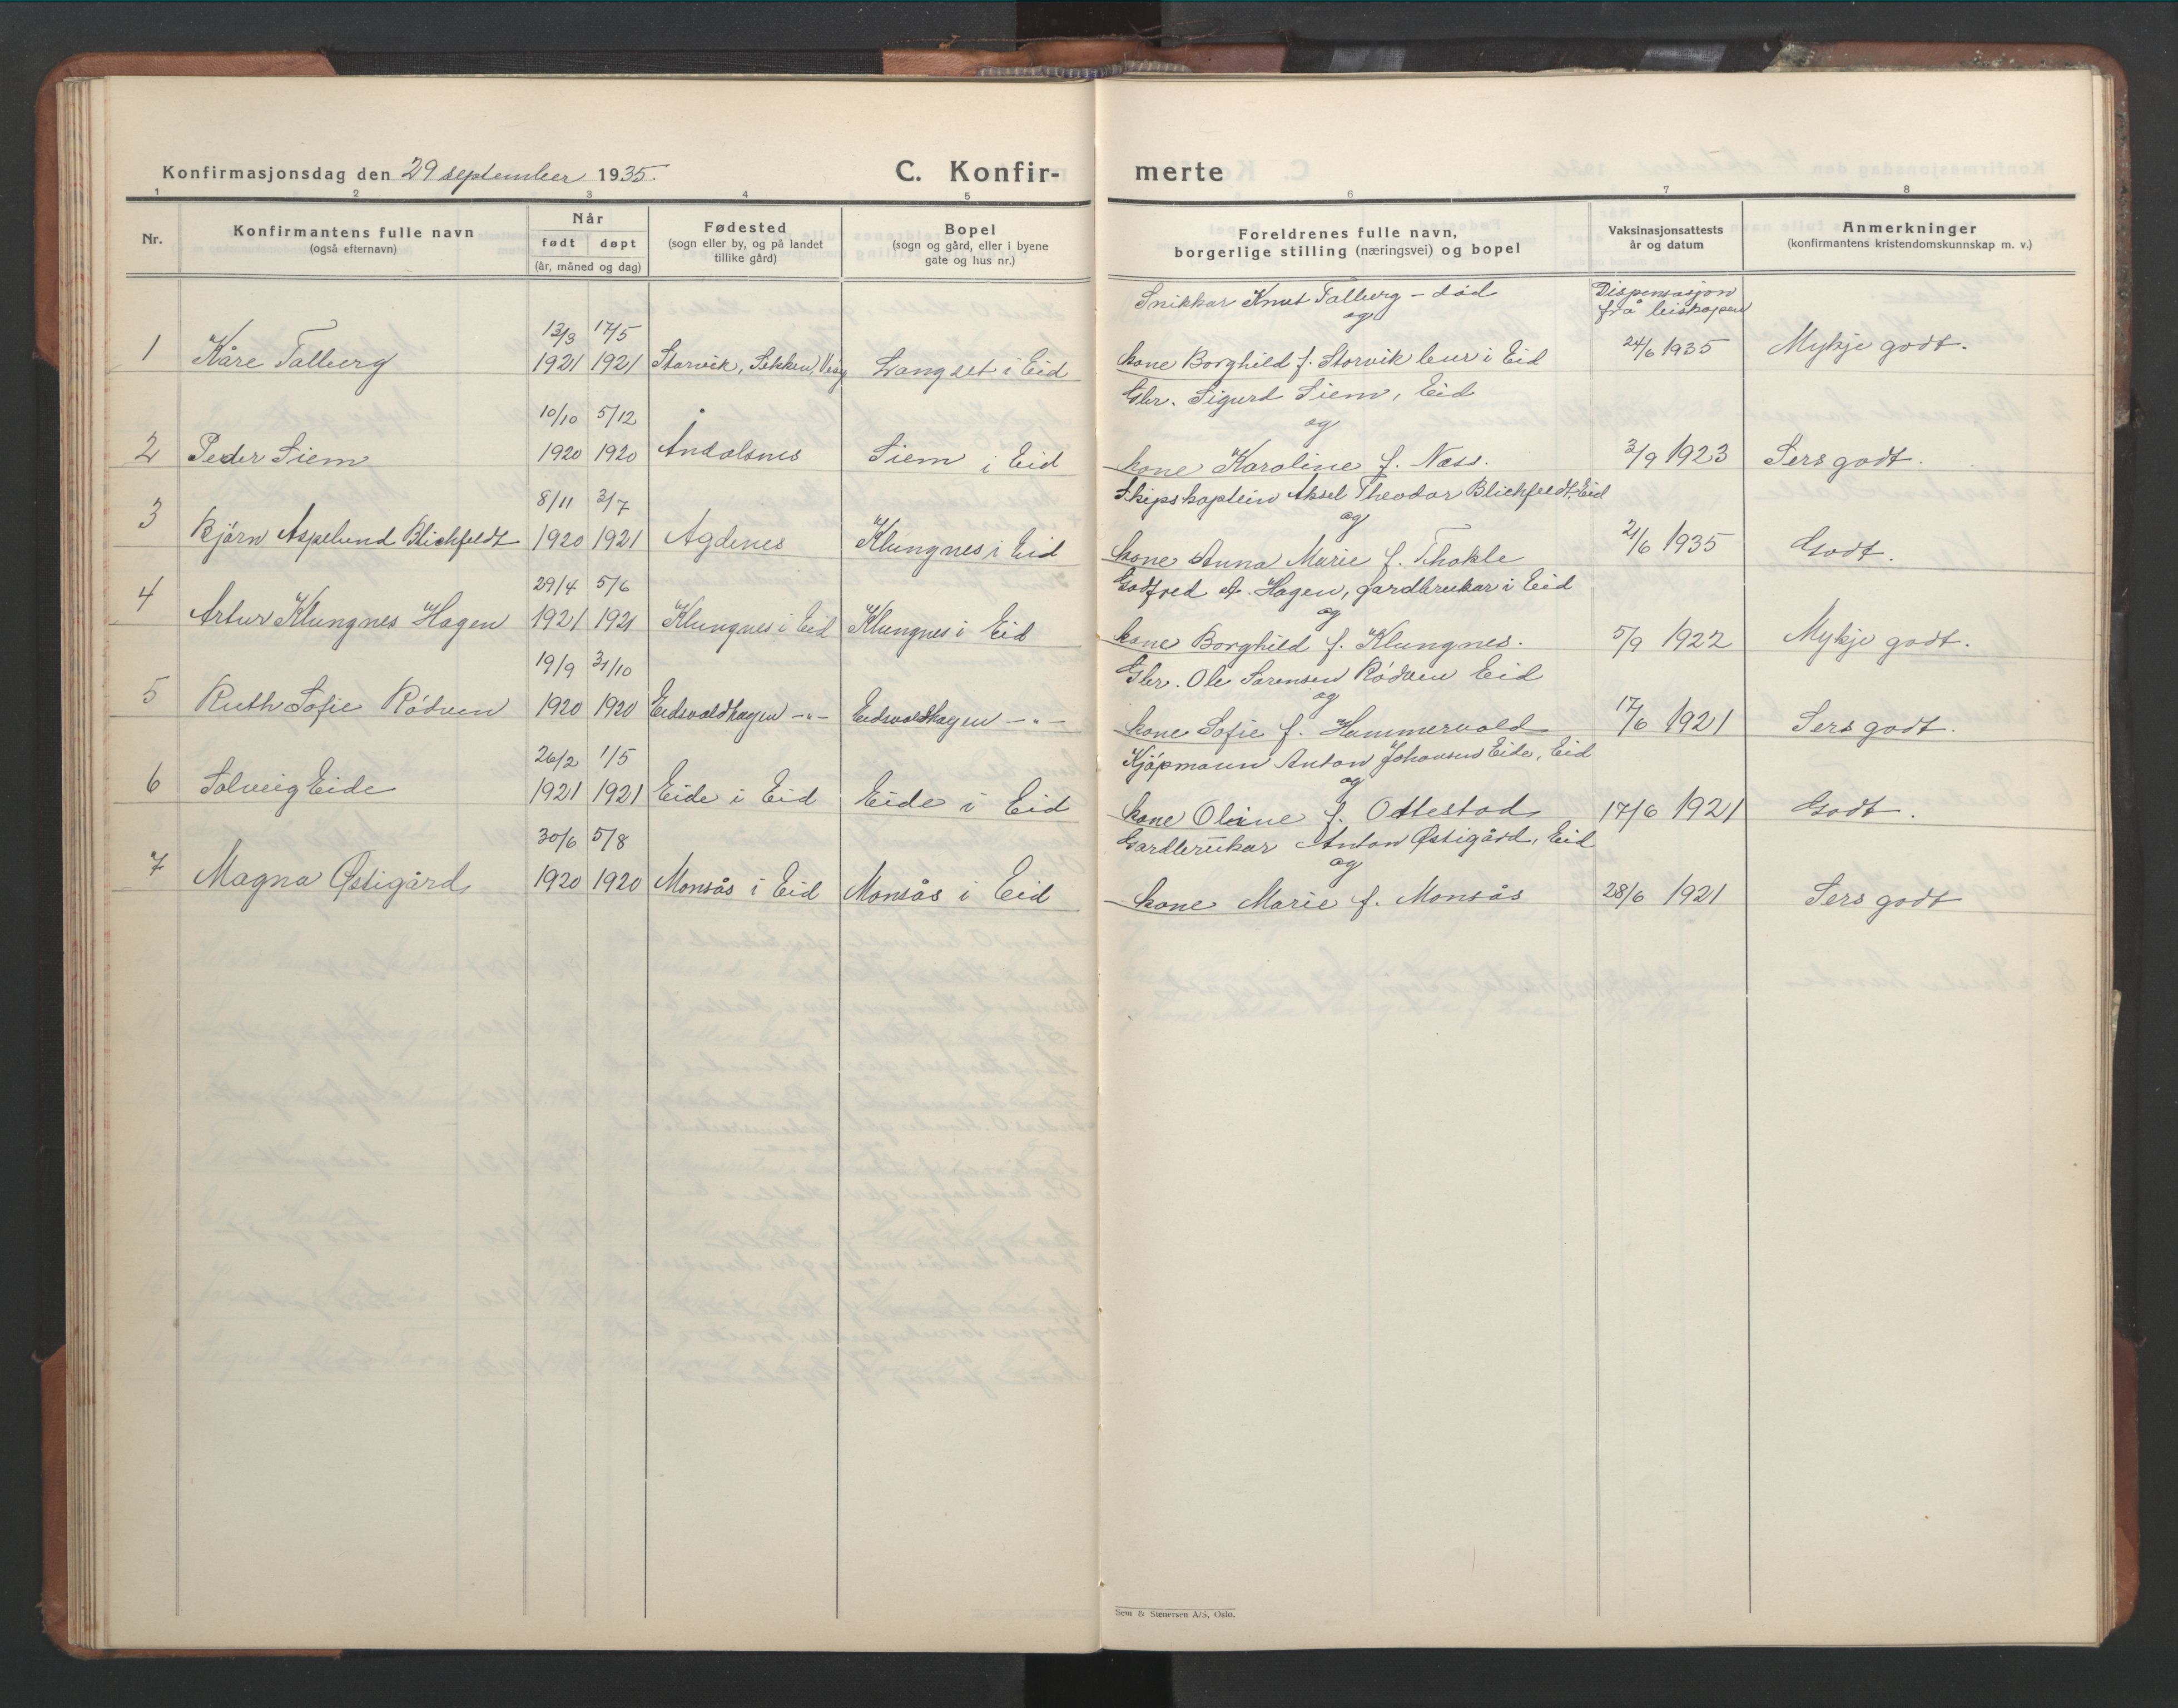 Konfirmasjonsdag den 29 september 1935.
C. Konfir-
merte
1 2 3 4 5 6 7 8
Nr.
Konfirmantens fulle navn
(også efternavn)
Når
født døpt
(år, måned og dag)
Fødested
(sogn eller by, og på landet
tillike gård)
Bopel
(sogn og gård, eller i byene
gate og hus nr.)
Foreldrenes fulle navn,
borgerlige stilling (næringsvei) og bopel
Vaksinasjonsattests
år og datum
Anmerkninger
(konfirmantens kristendomskunnskap m. v.)
Snikkar Knut Talberg - død Dispensasjon
og frå biskopen
13/3 17/5
1 Kåre Talberg 1921 1921 Storvik, Sekken, Veøy Langset i Eid kone Borghild f. Storvik bur i Eid 24/6 1935 Mykje godt.
10/10 5/12 Gbr. Sigurd Siem, Eid
og
2 Peder Siem 1920 1920 Åndalsnes Siem i Eid kone Karoline f. Næss. 3/9 1923 Sers godt.
8/11 3/7 Skipskaptein Aksel Theodor Blichfeldt, Eid
og
3 Bjørn Aspelund Blichfeldt 1920 1921 Agdenes Klungnes i Eid kone Anna Marie f. Thokle 21/6 1935 Godt.
29/4 5/6 Godfred A. Hagen, gardbrukar i Eid
og
4 Artur Klungnes Hagen 1921 1921 Klungnes i Eid Klungnes i Eid kone Borghild f. Klungnes. 5/9 1922 Mykje godt.
19/9 31/10 Gbr. Ole Sørensen Rødven Eid
og
5 Ruth Sofie Rødven 1920 1920 Eidsvoldhagen -"- Eidsvoldhagen -"- kone Sofie f. Hammervold 17/6 1921 Sers godt.
26/2 1/5 Kjøpmann Anton Johansen Eide, Eid
og
6 Solveig Eide 1921 1921 Eide i Eid Eide i Eid kone Oline f. Ottestad 17/6 1921 Godt.
30/6 5/8 Gardbrukar Anton Østigård, Eid
og
7 Magna Østigård 1920 1920 Monsås i Eid Monsås i Eid kone Marie f. Monsås 28/6 1921 Sers godt
Sem & Stenersen A/S, Oslo.